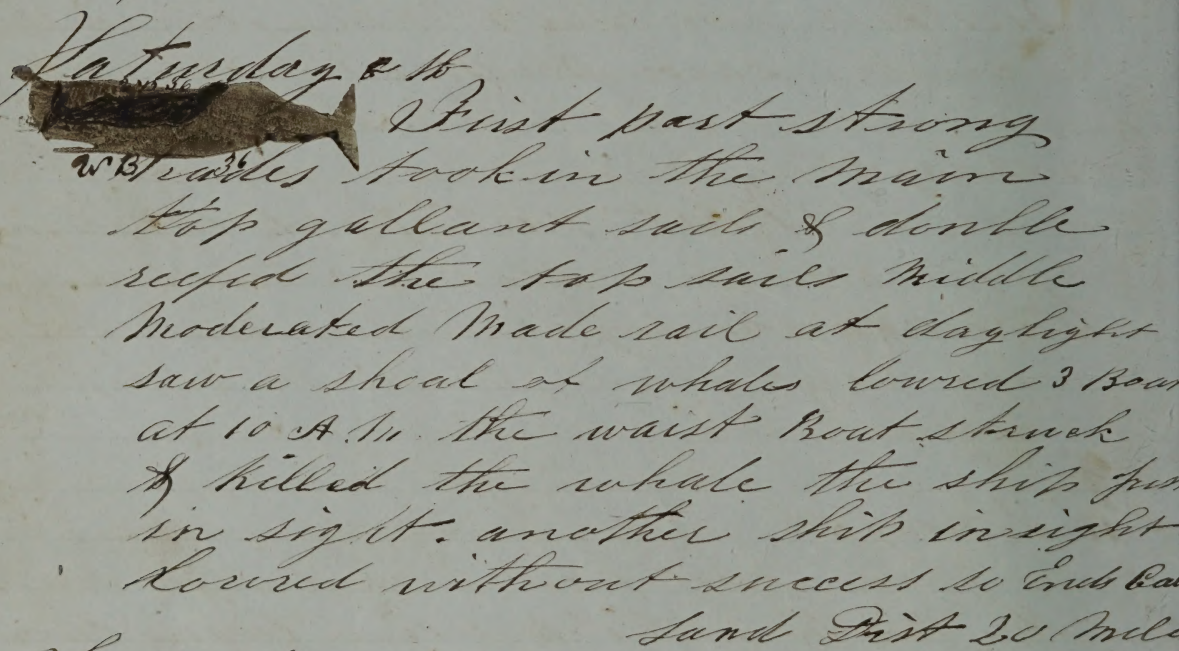 Saturday 8 th
First part strong
W B 36
trades took in the main
top gallant sails & double
reefed the top sails middle
Moderated Made sail at daylight
saw a shoal of whales lowred 3 Boa
at 10 A.M. the waist Boat struck
& killed the whale the ship jus
in sight. another ship in sight
Lowred without success so Ends
Land Dist 20 Mile